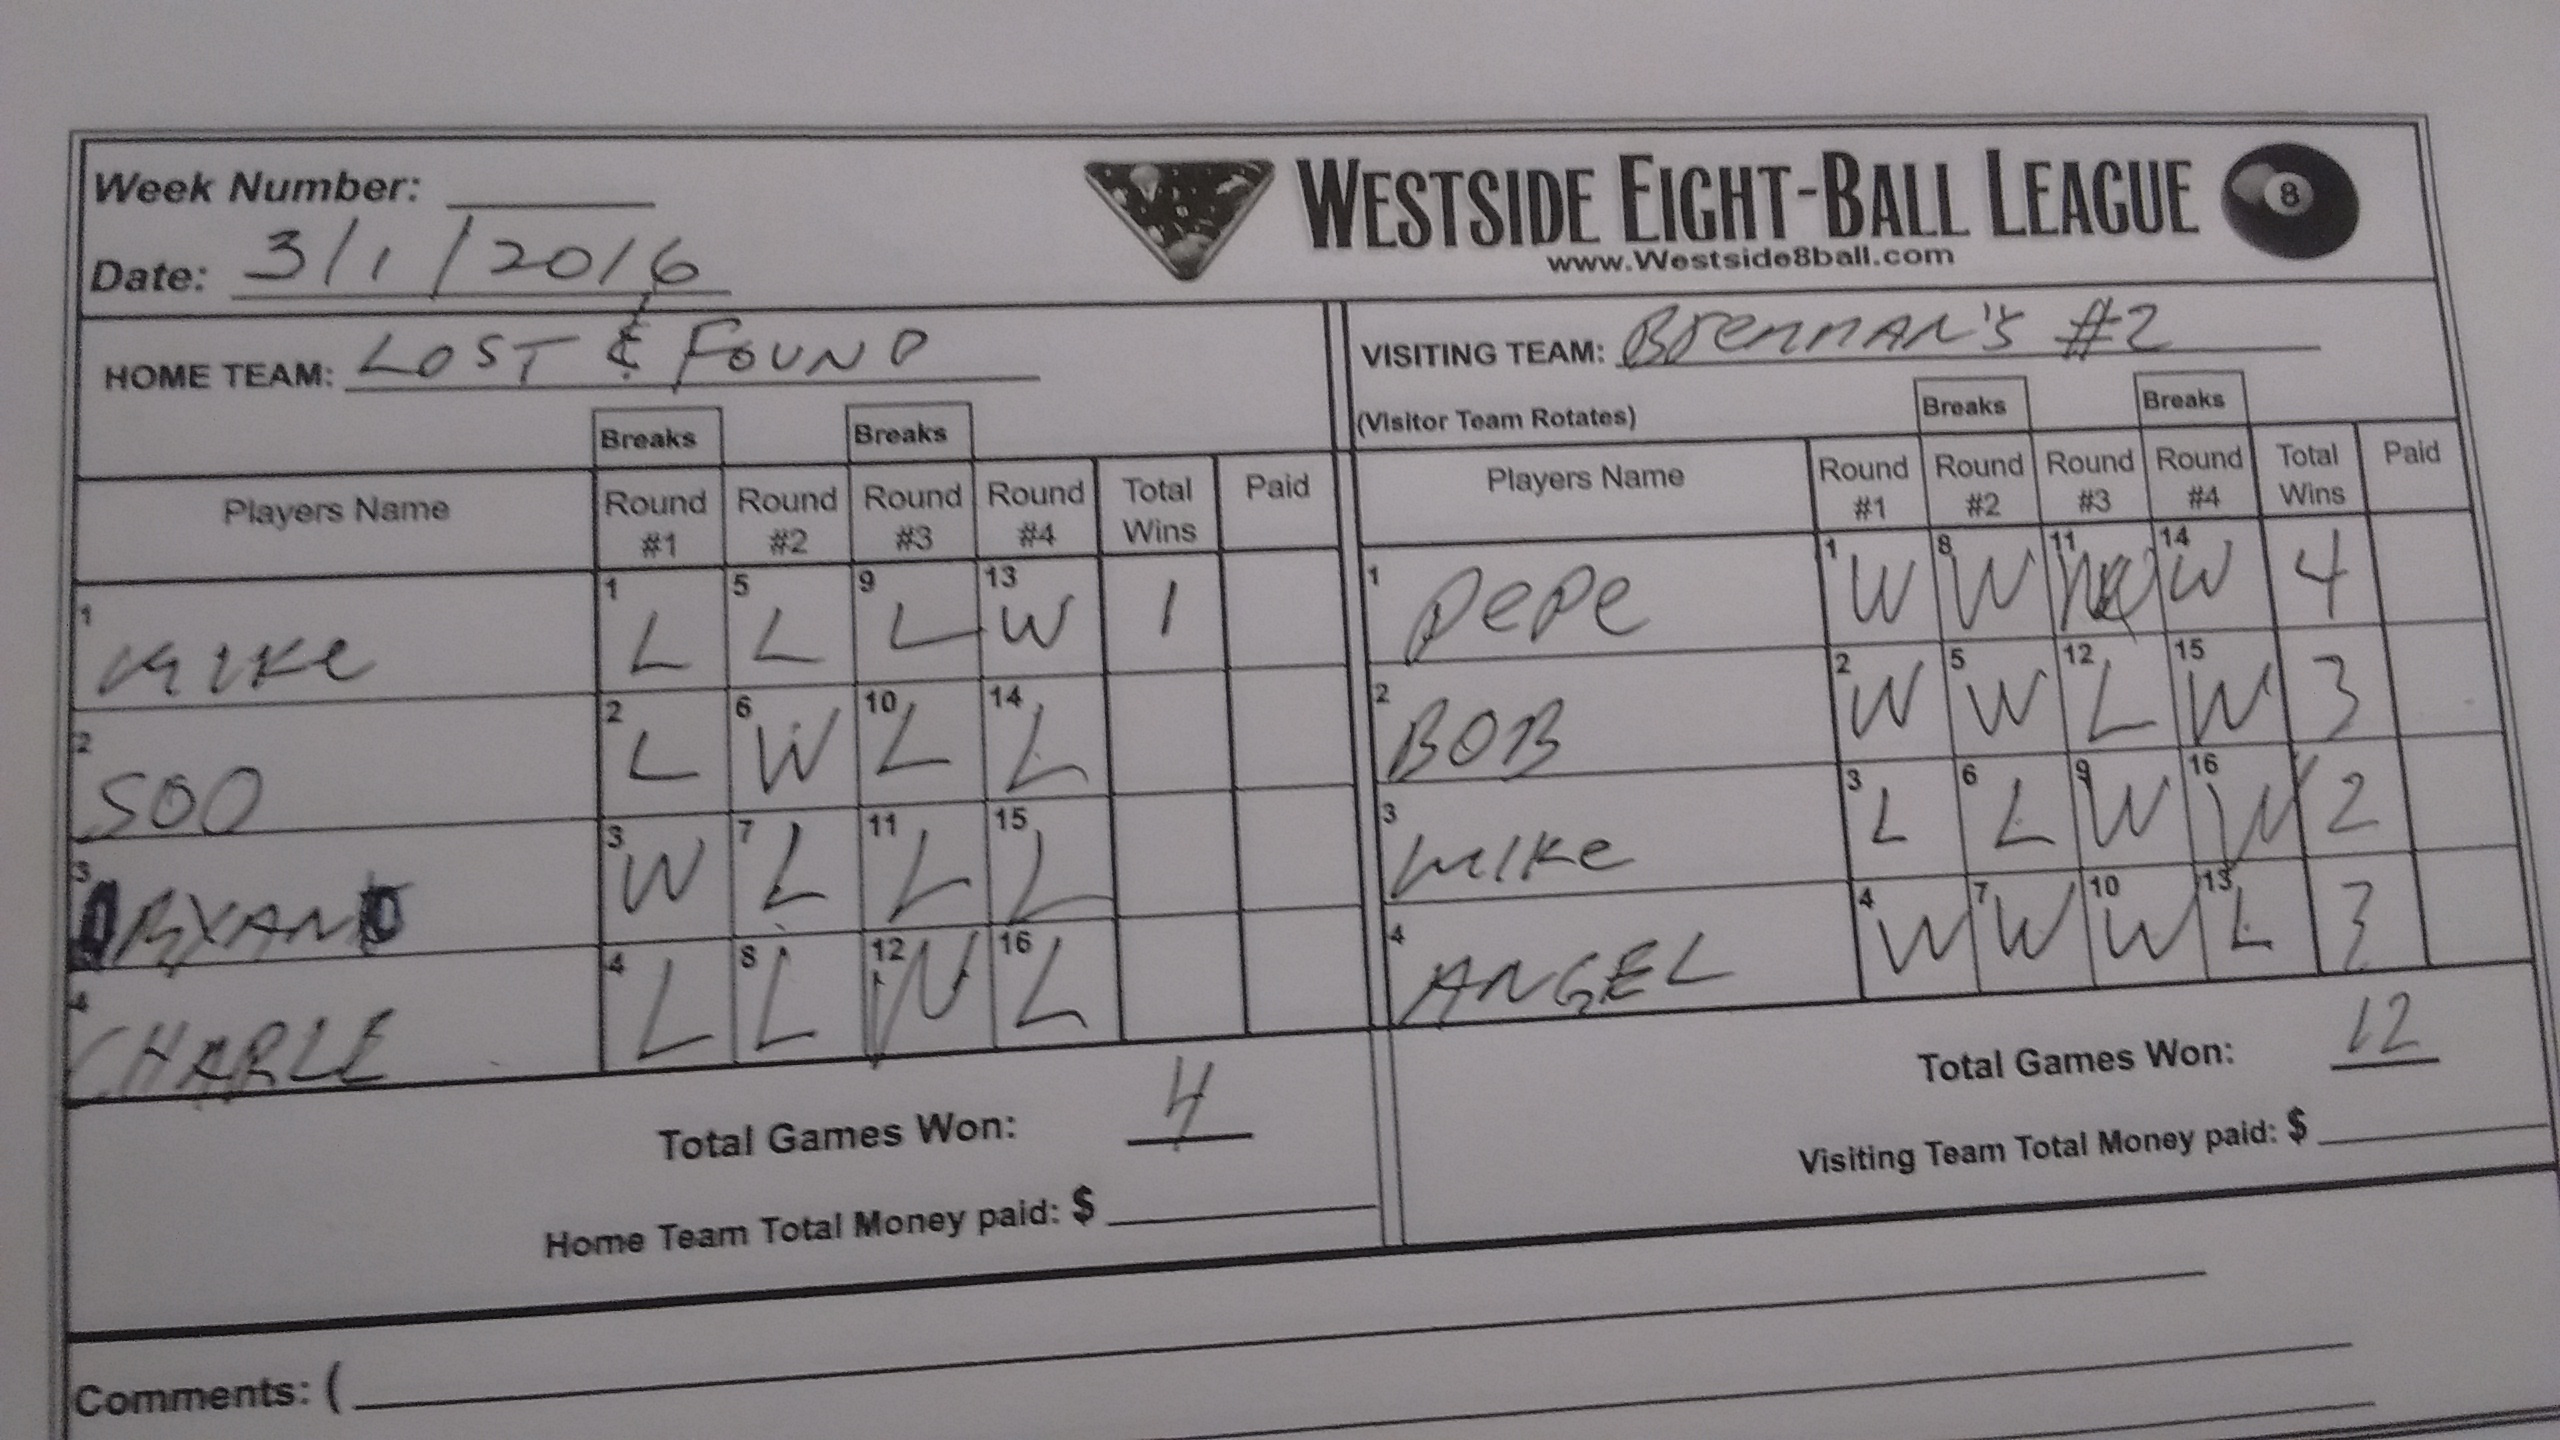 Week Number:
WESTSIDE EIGHT-BALL LEAGUE 8
www.Westside8ball.com
Date: 3/1/2016
HOME TEAM: LOST & FOUND
Breaks Breaks
Players Name Round #1 Round #2 Round #3 Round #4 Total Wins Paid
1 MIKe 1 L 5 L 9 L 13 W 1
2 SOO 2 L 6 W 10 L 14 L
3 RYAN 3 W 7 L 11 L 15 L
4 CHARLE 4 L 8 L 12 W 16 L
Total Games Won: 4
Home Team Total Money paid: $
VISITING TEAM: BrennAN's #2
(Visitor Team Rotates) Breaks Breaks
Players Name Round #1 Round #2 Round #3 Round #4 Total Wins Paid
1 PePe 1 W 8 W 11 W 14 W 4
2 BOB 2 W 5 W 12 L 15 W 3
3 MIKe 3 L 6 L 9 W 16 W 2
4 ANGEL 4 W 7 W 10 W 13 L 3
Total Games Won: 12
Visiting Team Total Money paid: $
Comments: (